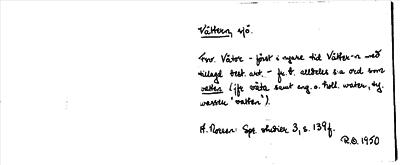 Vättern, sjö.
Fsv. Vätor - först i nyare tid Vätter-n med
tillagd best. art. - fr. b. alldeles s:a ord som
vatten (jfr väta samt eng. o. holl. water, ty.
wasser "vatten").
A. Noreen Spr. studier 3, s. 139 f.
R.O. 1950